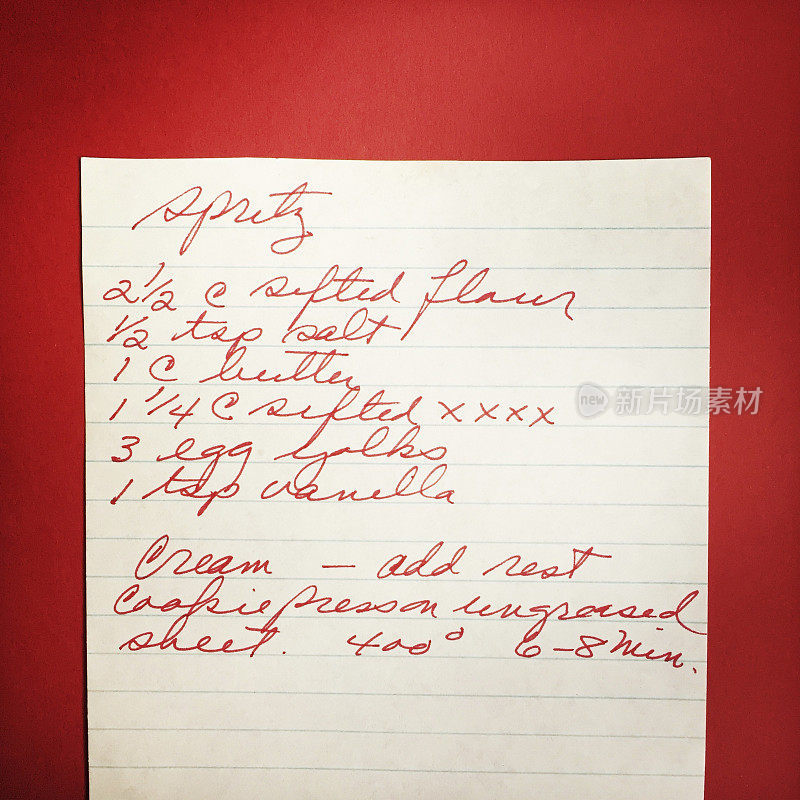 Spritz
2 1/2 c sifted flour
1/2 tsp salt
1 C butter
1 1/4 C sifted xxxx
3 egg yolks
1 tsp vanilla
Cream — add rest
Cookie press on ungreased
sheet. 400° 6-8 min.
new 新图片 新浪微